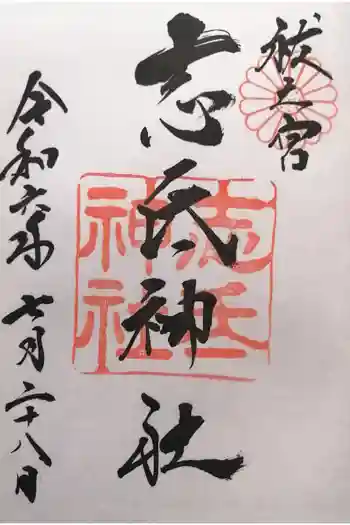 祓之宮
志氏神社
志氏
神社
令和六年 七月二十八日